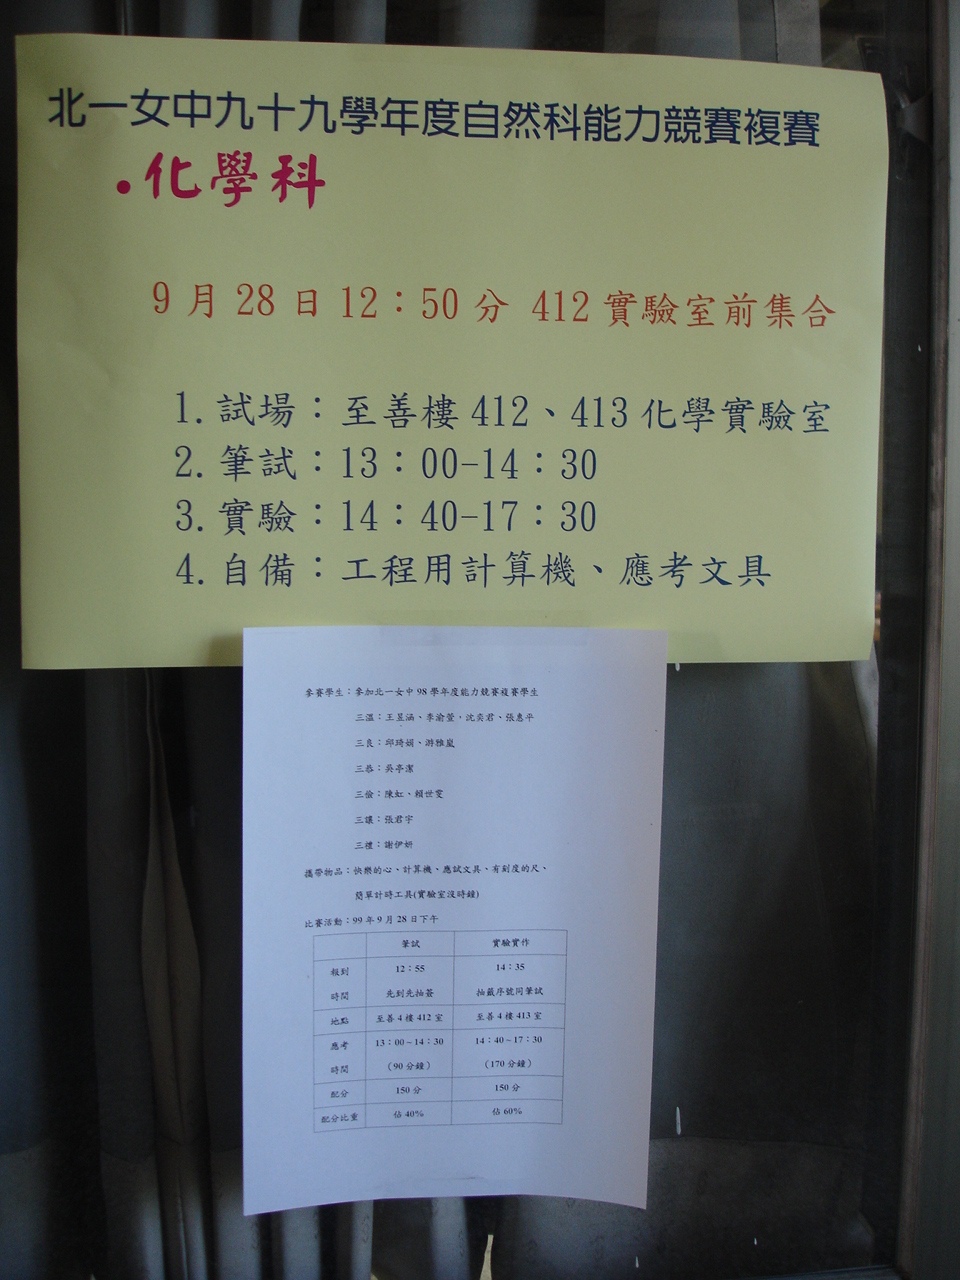 北一女中九十九學年度自然科能力競賽複賽
•化學科
9月28日12：50分 412實驗室前集合
1.試場：至善樓412、413化學實驗室
2.筆試：13：00-14：30
3.實驗：14：40-17：30
4.自備：工程用計算機、應考文具
參賽學生：參加北一女中98學年度能力競賽複賽學生
三溫：王昱涵、季渝萱，沈奕君、張惠平
三良：邱琦娟、游雅嵐
三恭：吳亭潔
三儉：陳虹、賴世雯
三讓：張君宇
三禮：謝伊妍
攜帶物品：快樂的心、計算機、應試文具、有刻度的尺、
簡單計時工具(實驗室沒時鐘)
比賽活動：99年9月28日下午
筆試 實驗實作
報到 12：55 14：35
時間 先到先抽簽 抽籤序號同筆試
地點 至善4樓412室 至善4樓413室
應考 13：00~14：30 14：40~17：30
時間 （90分鐘） （170分鐘）
配分 150分 150分
配分比重 佔40% 佔60%